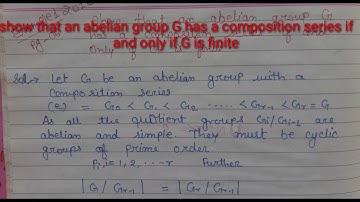 show that an abelian group G has a composition series if
and only if G is finite
Solⁿ → Let G be an abelian group with a
Composition series
(e) = G₀ < G₁ < G₂ ...... < Gr-1 < Gr = G
As all the quotient groups Gi/Gi-1 are
abelian and simple. They must be cyclic
groups of prime order
Pi, i = 1, 2, ... r Further
|G/Gr-1| = |Gr/Gr-1|